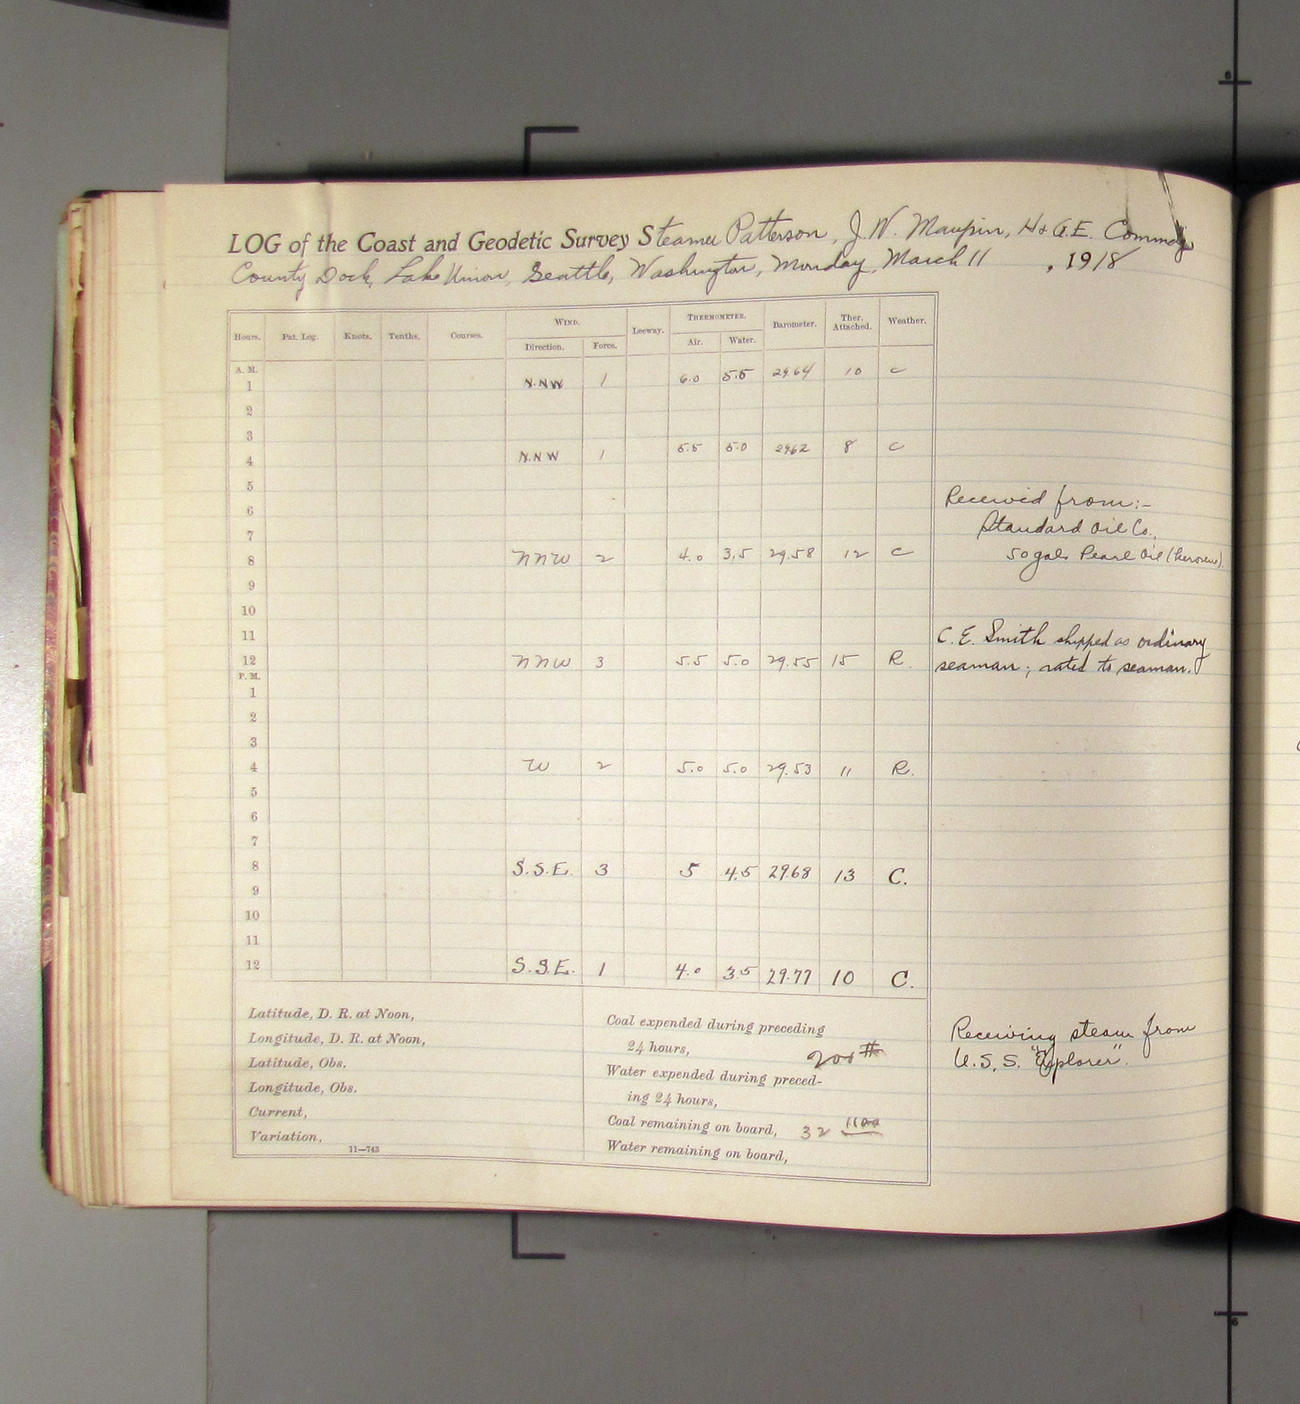 LOG of the Coast and Geodetic Survey Steamer Patterson, J. W. Maupin, H. & G. E. Commdg
County Dock, Lake Union, Seattle, Washington, Monday, March 11, 1918
Hours. Pat. Log. Knots. Tenths. Courses. WIND. Leeway. THERMOMETER. Barometer. Ther. Attached. Weather.
Direction. Force. Air. Water.
A. M.
1 N.N.W 1 6.0 5.5 2964 10 C
2
3
4 N.N.W 1 5.5 5.0 2962 8 C
5
6 Received from:-
7 Standard Oil Co.,
8 NNW 2 4.0 3.5 29.58 12 C 50 gals Pearl Oil (kerosene)
9
10
11 C. E. Smith shipped as ordinary
12 NNW 3 5.5 5.0 29.55 15 R seaman; rated to seaman.
P. M.
1
2
3
4 W 2 5.0 5.0 29.53 11 R.
5
6
7
8 S.S.E. 3 5 4.5 29.68 13 C.
9
10
11
12 S.S.E. 1 4.0 3.5 29.77 10 C.
Latitude, D. R. at Noon,
Longitude, D. R. at Noon,
Latitude, Obs.
Longitude, Obs.
Current,
Variation,
11—743
Coal expended during preceding
24 hours, 200 #
Water expended during preced-
ing 24 hours,
Coal remaining on board, 32 1100
Water remaining on board,
Receiving steam from
U. S. S. "Explorer".
6
6